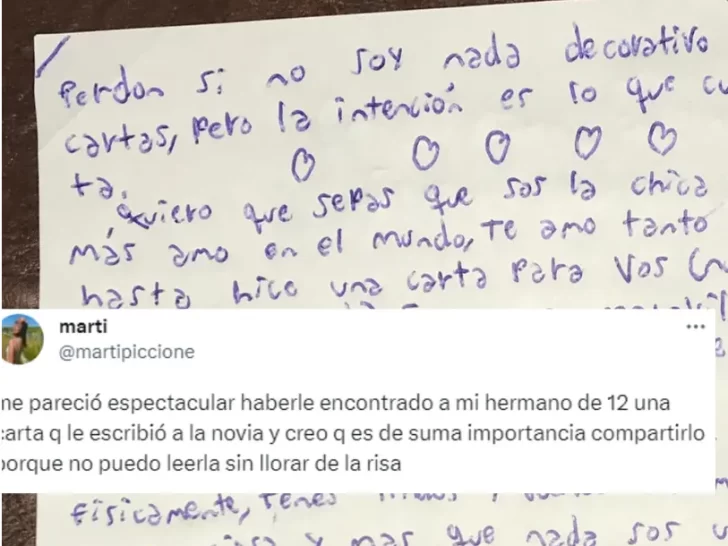 Perdon si no soy nada decorativo
cartas, pero la intención es lo que cu
ta.
Quiero que sepas que sos la chica
más amo en el mundo, te amo tanto
hasta hice una carta para vos
marti
@martipiccione
ne pareció espectacular haberle encontrado a mi hermano de 12 una
carta q le escribió a la novia y creo q es de suma importancia compartirlo
porque no puedo leerla sin llorar de la risa
físicamente, tenés
y mas que nada sos